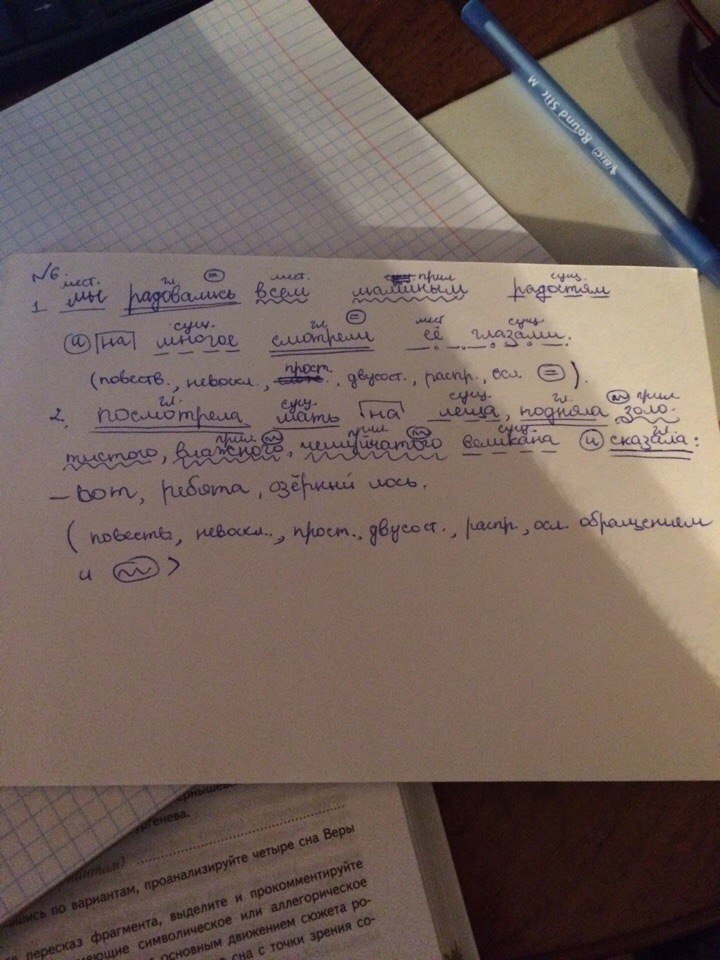 BIC Round Stic M
№6
мест. гл. = мест. прил сущ.
1 мы радовались всем маминым радостям
сущ. гл. = мест сущ.
а на многое смотрели её глазами.
(повеств., невоскл., двусост., распр., осл =).
гл. сущ. сущ. прил.
2. посмотрела мать на леща, подняла золо-
прил прил. сущ. гл.
тистого, влажного, чешуйчатого великана и сказала:
– Вот, ребята, озёрный лось.
(повеств, невоскл., прост., двусост., распр, осл. обращением
и )
ургенева.
по вариантам, проанализируйте четыре сна Веры
пересказ фрагмента, выделите и прокомментируйте
имеющие символическое или аллегорическое
основным движением сюжета ро-
сна с точки зрения со-